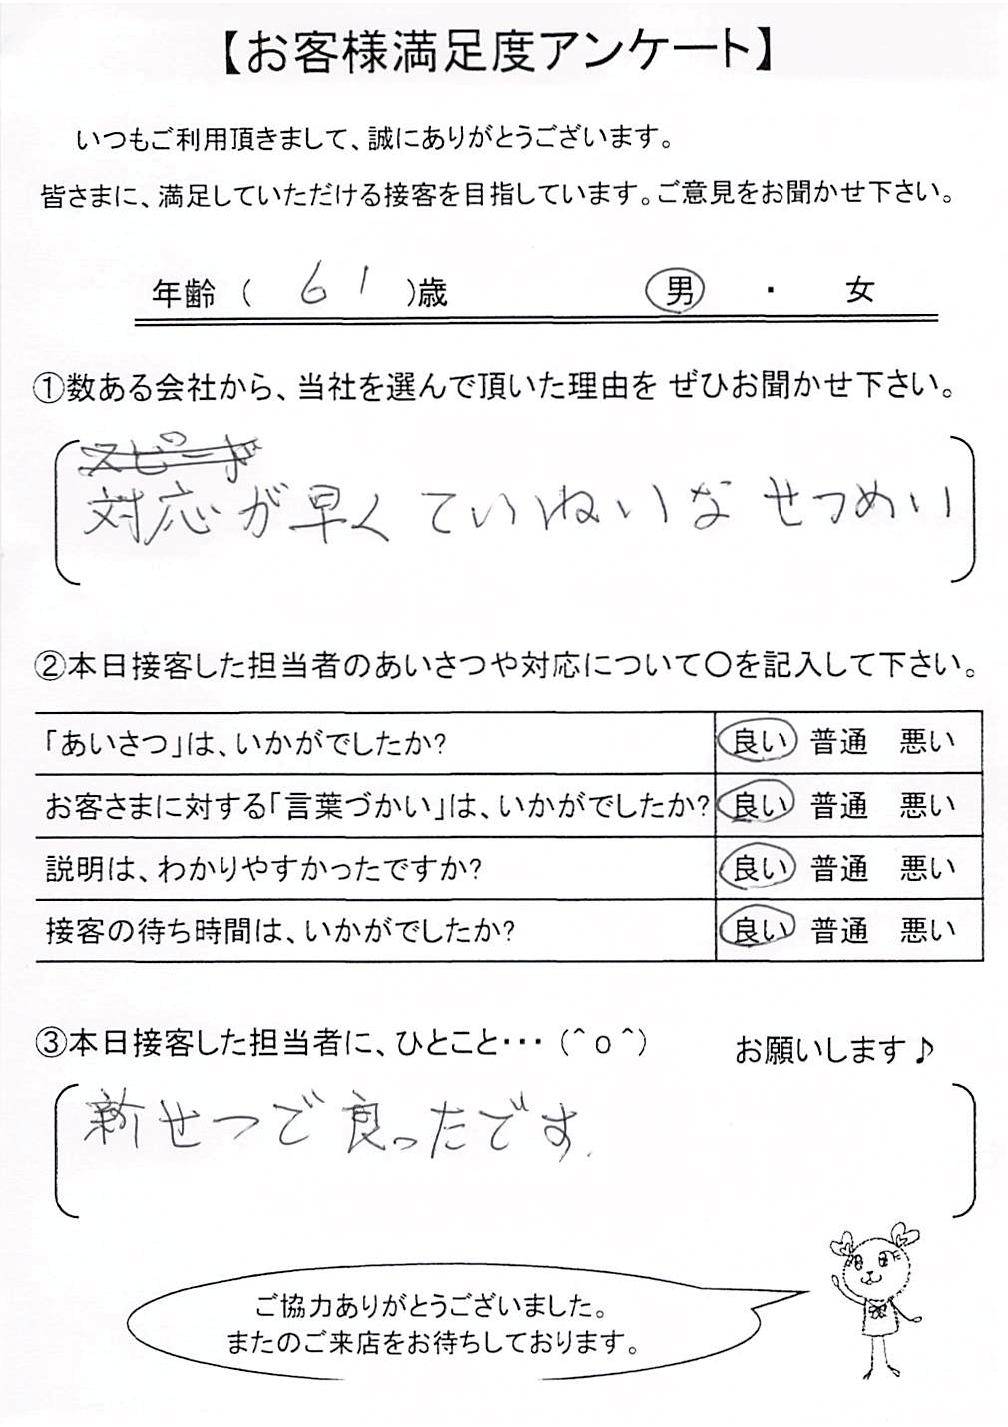 【お客様満足度アンケート】
いつもご利用頂きまして、誠にありがとうございます。
皆さまに、満足していただける接客を目指しています。ご意見をお聞かせ下さい。
年齢 ( 61 )歳 男 ・ 女
①数ある会社から、当社を選んで頂いた理由を ぜひお聞かせ下さい。
スピード
対応が早く ていいねいな せつめい
②本日接客した担当者のあいさつや対応について〇を記入して下さい。
「あいさつ」は、いかがでしたか? 良い 普通 悪い
お客さまに対する「言葉づかい」は、いかがでしたか? 良い 普通 悪い
説明は、わかりやすかったですか? 良い 普通 悪い
接客の待ち時間は、いかがでしたか? 良い 普通 悪い
③本日接客した担当者に、ひとこと・・・ (^o^) お願いします♪
新せつで良ったです.
ご協力ありがとうございました。
またのご来店をお待ちしております。